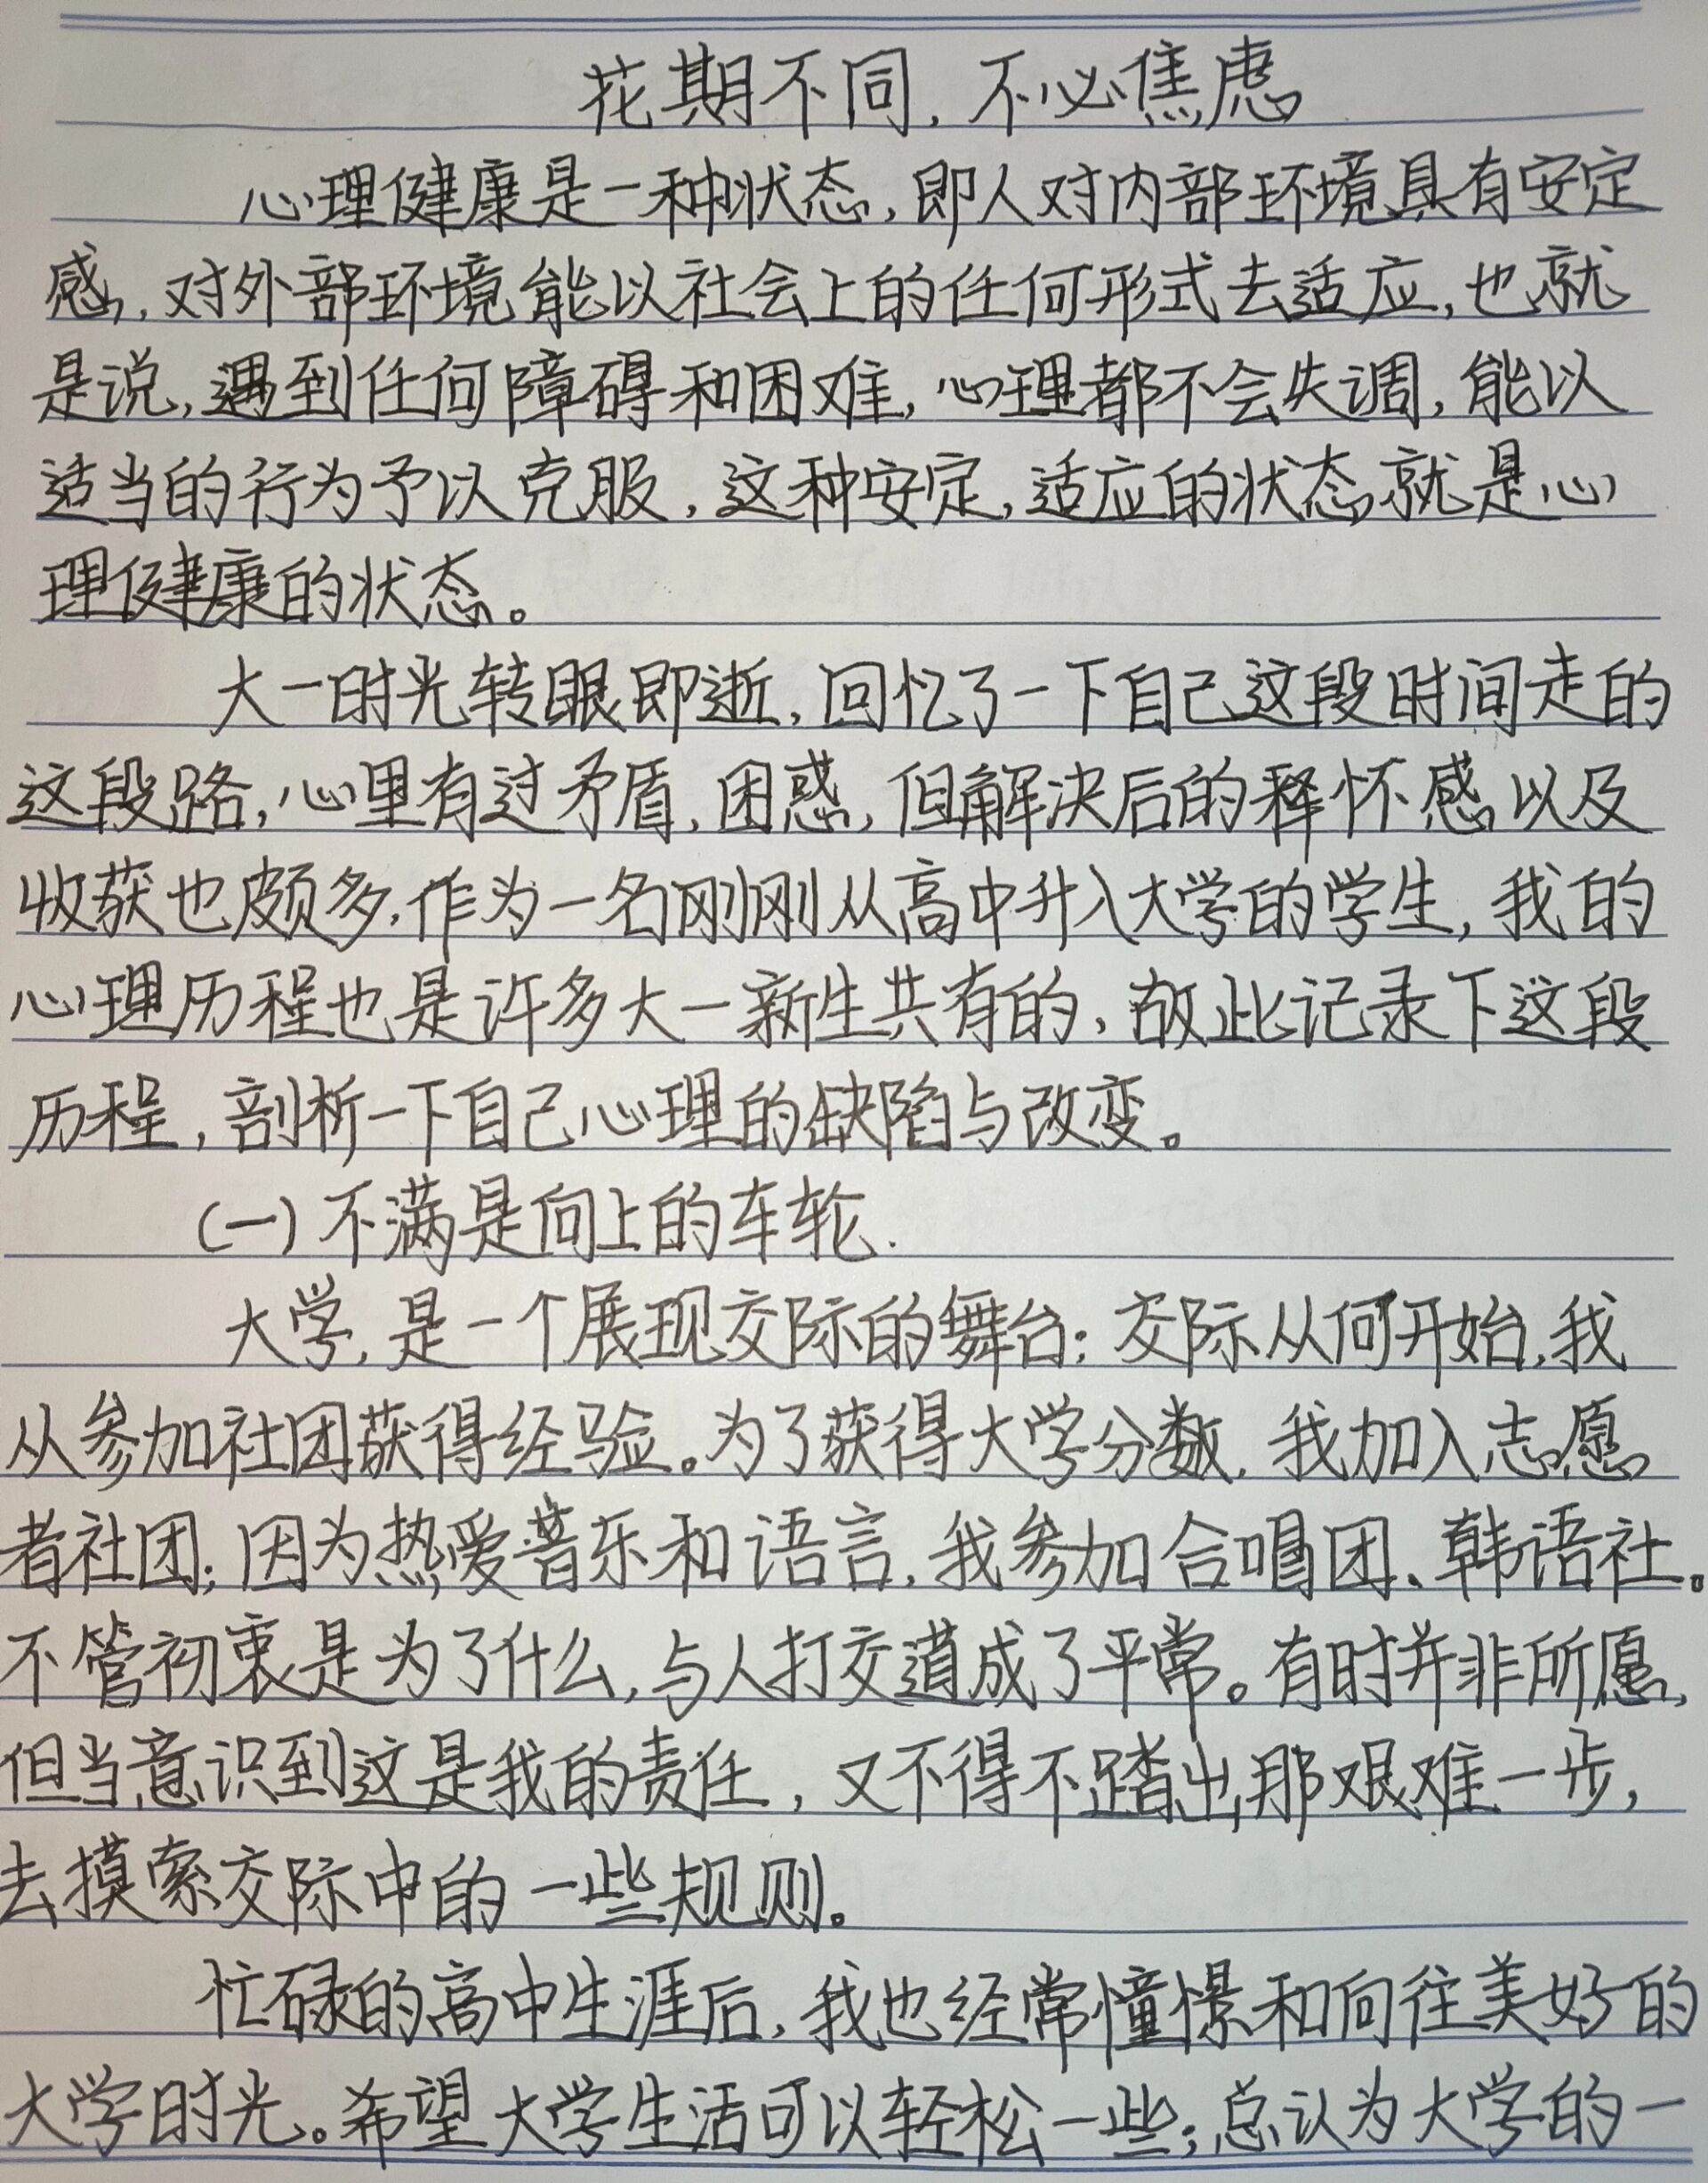 花期不同,不必焦虑
心理健康是一种状态,即人对内部环境具有安定
感,对外部环境能以社会上的任何形式去适应,也就
是说,遇到任何障碍和困难,心理都不会失调,能以
适当的行为予以克服,这种安定,适应的状态就是心
理健康的状态。
大一时光转眼即逝,回忆了一下自己这段时间走的
这段路,心里有过矛盾,困惑,但解决后的释怀感以及
收获也颇多,作为一名刚刚从高中升入大学的学生,我的
心理历程也是许多大一新生共有的,故此记录下这段
历程,剖析一下自己心理的缺陷与改变。
(一)不满是向上的车轮.
大学,是一个展现交际的舞台;交际从何开始,我
从参加社团获得经验。为了获得大学分数,我加入志愿
者社团;因为热爱音乐和语言,我参加合唱团、韩语社。
不管初衷是为了什么,与人打交道成了平常。有时并非所愿,
但当意识到这是我的责任,又不得不踏出那艰难一步,
去摸索交际中的一些规则。
忙碌的高中生涯后,我也经常憧憬和向往美好的
大学时光。希望大学生活可以轻松一些;总认为大学的一